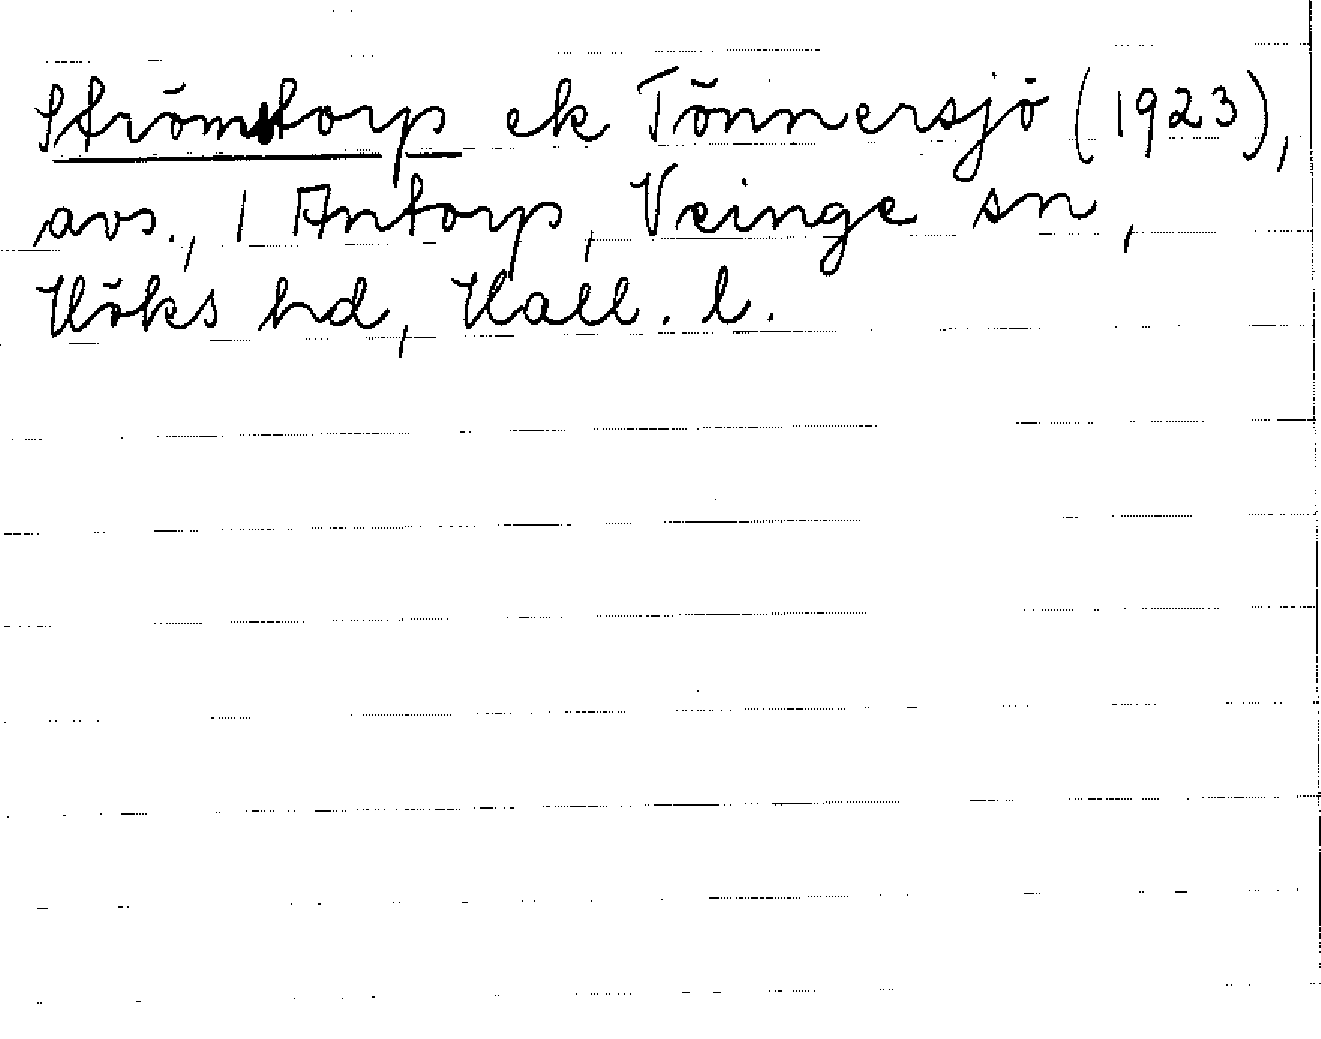 Strömtorp ek Tönnersjö (1923),
avs., 1 Antorp, Veinge sn,
Höks hd, Hall. l.